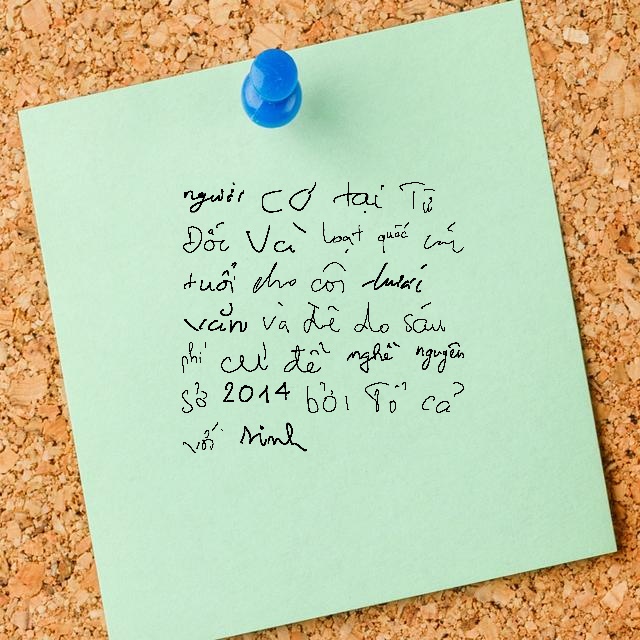 người cơ tại Từ
Đốc Và loạt quốc cấy
tuổi cho cõi
văn và đề do sáu
phi cư để nghề nguyên
sở 2014 bởi Tổ cả
với sinh